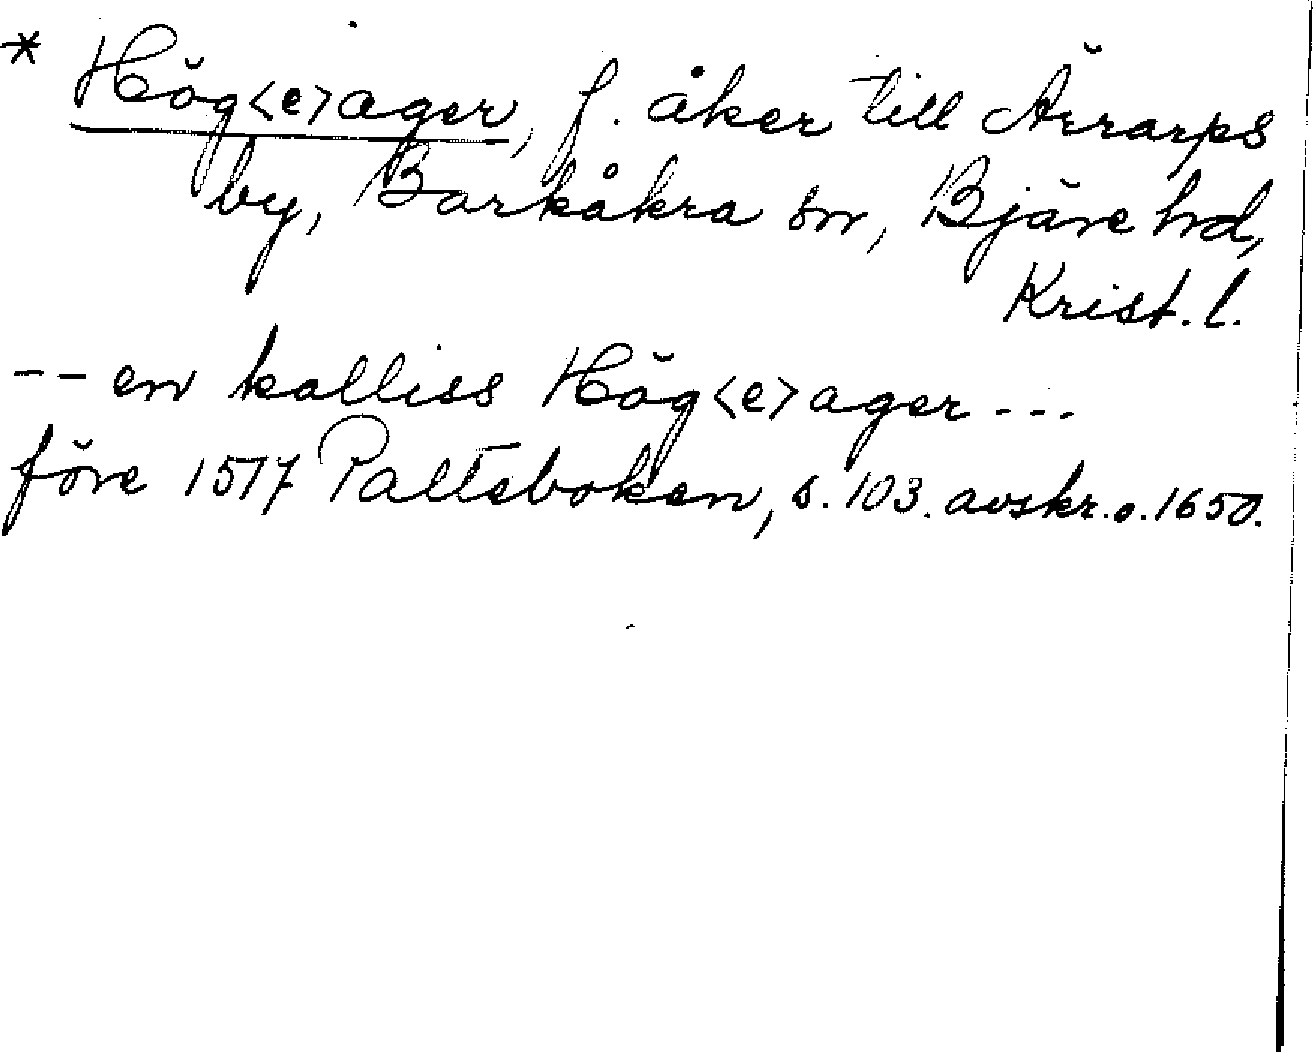 * Hög<e>ager, f. åker till Ärrarps
by, Barkåkra sn, Bjäre hd,
Krist. l.
-- en kalliss Hög<e>ager ---
före 1517 Palteboken, s. 103. avskr. o. 1650.